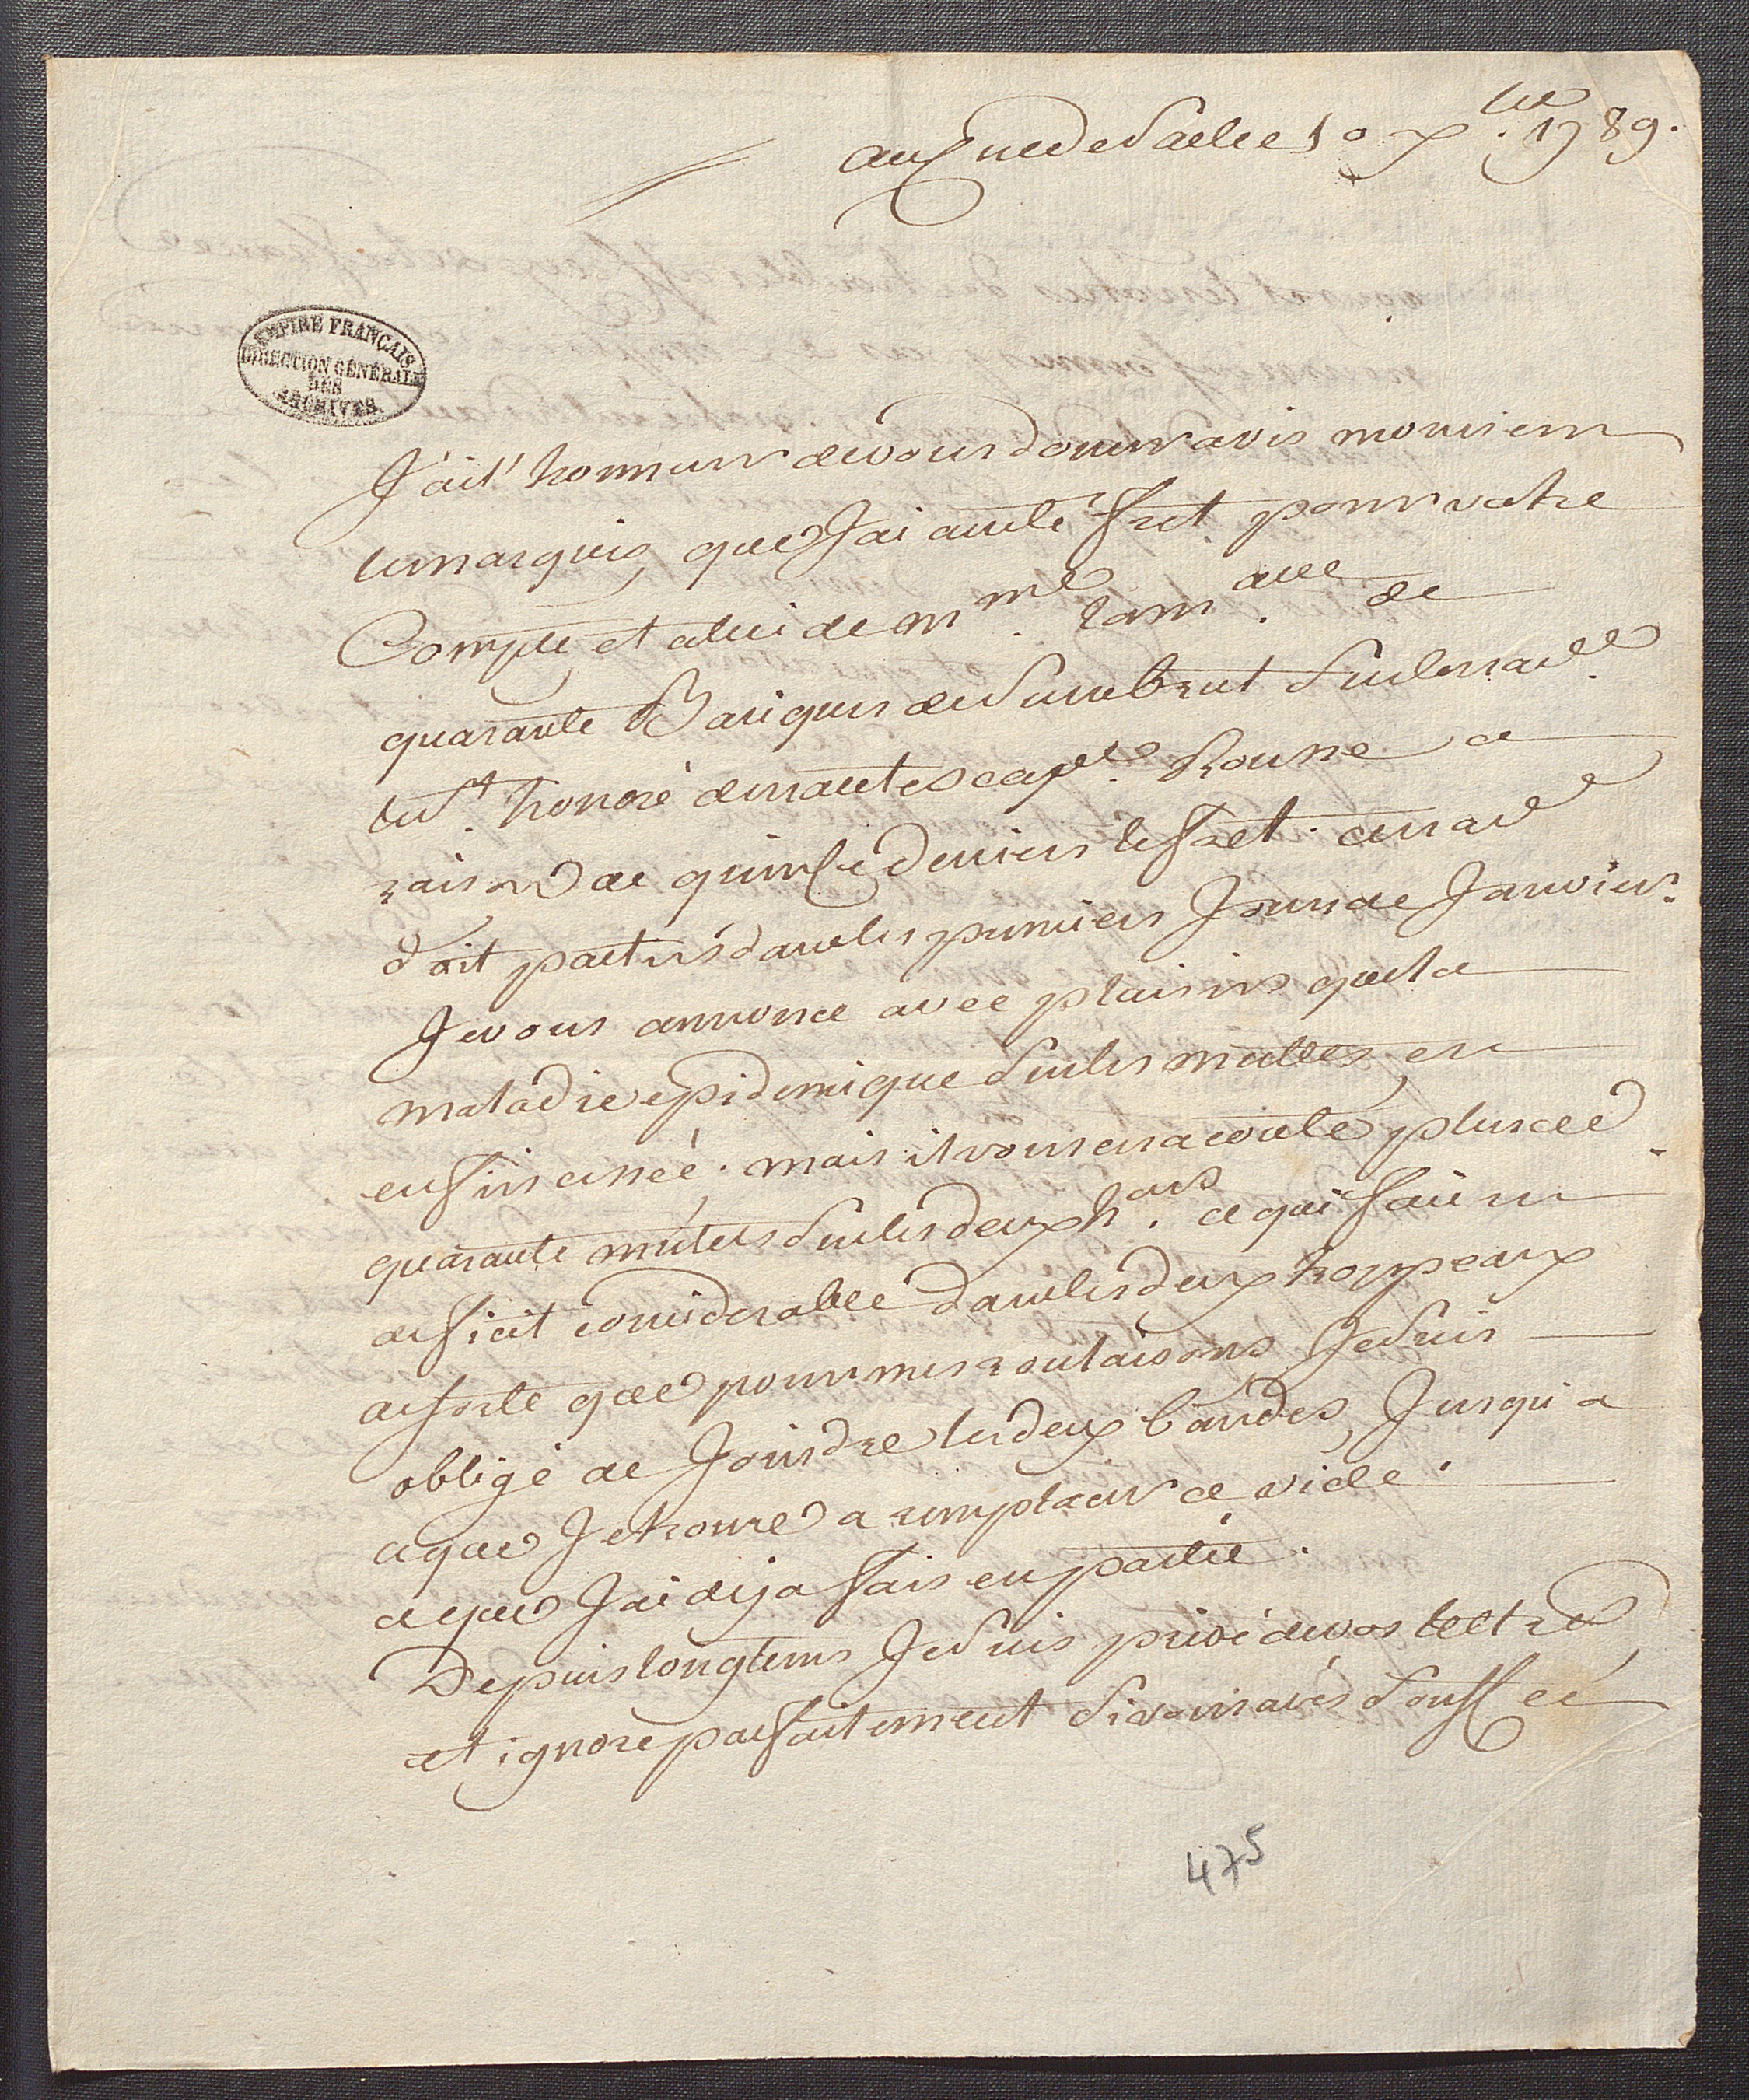 10 xbre. 1789.
EMPIRE FRANÇAIS
DIRECTION GÉNÉRALE
DES
ARCHIVES.
J'ai l'honneur de vous donner avis monsieur
le marquis, que J'ai arreté fret pour votre
Compte et celui de mme. la mise. de
quarante Bariques de Sucre brut Sur le navre.
le st. honoré de nantes cape. a
raison de quinze deniers le fret. ce nave
doit partir dans les premiers Jours de Janvier.
Je vous annonce avec plaisir que la
maladie epidemique Sur les mulles, en
enfin cessé. mais il vous en a couté plus de
quarante mulets Sur les deux hons. ce qui fai un
deficit considerable dans les deux troppeaux
de sorte que pour mes roulaisons Je Suis
obligé de Joindre les deux bandes, Jusqu'a
ce que Je trouve a remplacer ce vide.
ce que J'ai deja fais en partie.
Depuis longtems Je Suis privé de vos lettre
et ignore parfaitement Si vous avés Souffert
475